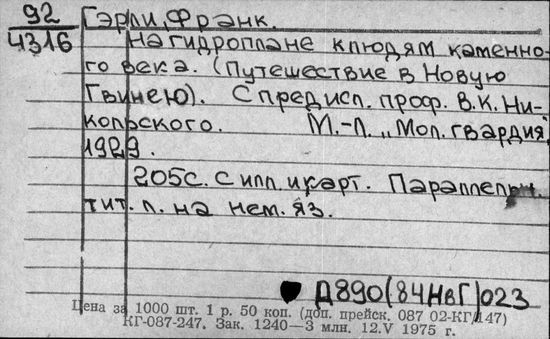 92
4316
Гэрли, Франк.
На гидроплане к людям каменно-
го века. (Путешествие в Новую
Гвинею). С предисл. проф. В.К. Ни-
кольского. М.-Л. „Мол. гвардия",
1929.
205с. с илл. и карт. Параллельн.
тит. л. на нем. яз.
Д890(84НвГ)023
Цена за 1000 шт. 1 р. 50 коп. (доп. прейск. 087 02-КГ/147)
КГ-087-247. Зак. 1240—3 млн. 12.V 1975 г.